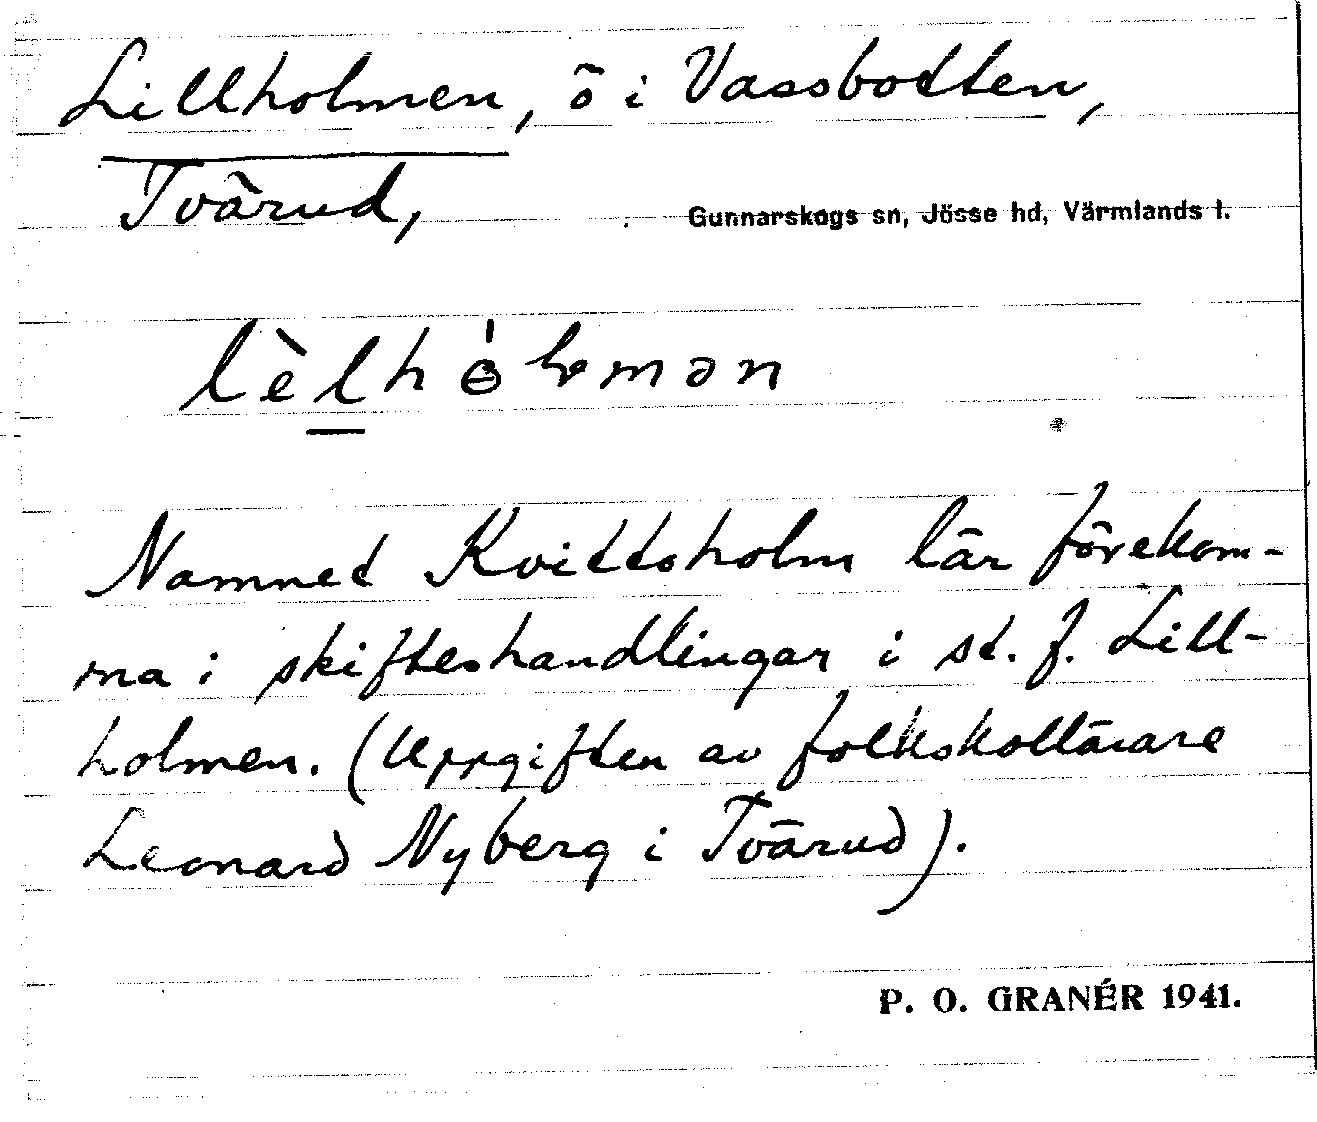 Lillholmen, ö i Vassbotten,
Tvärud,
Gunnarskogs sn, Jösse hd, Värmlands l.
Namnet Kvittsholm lär förekom-
ma i skifteshandlingar i st. f. Lill-
holmen. (Uppgiften av folkskollärare
Leonard Nyberg i Tvärud).
P. O. GRANÉR 1941.